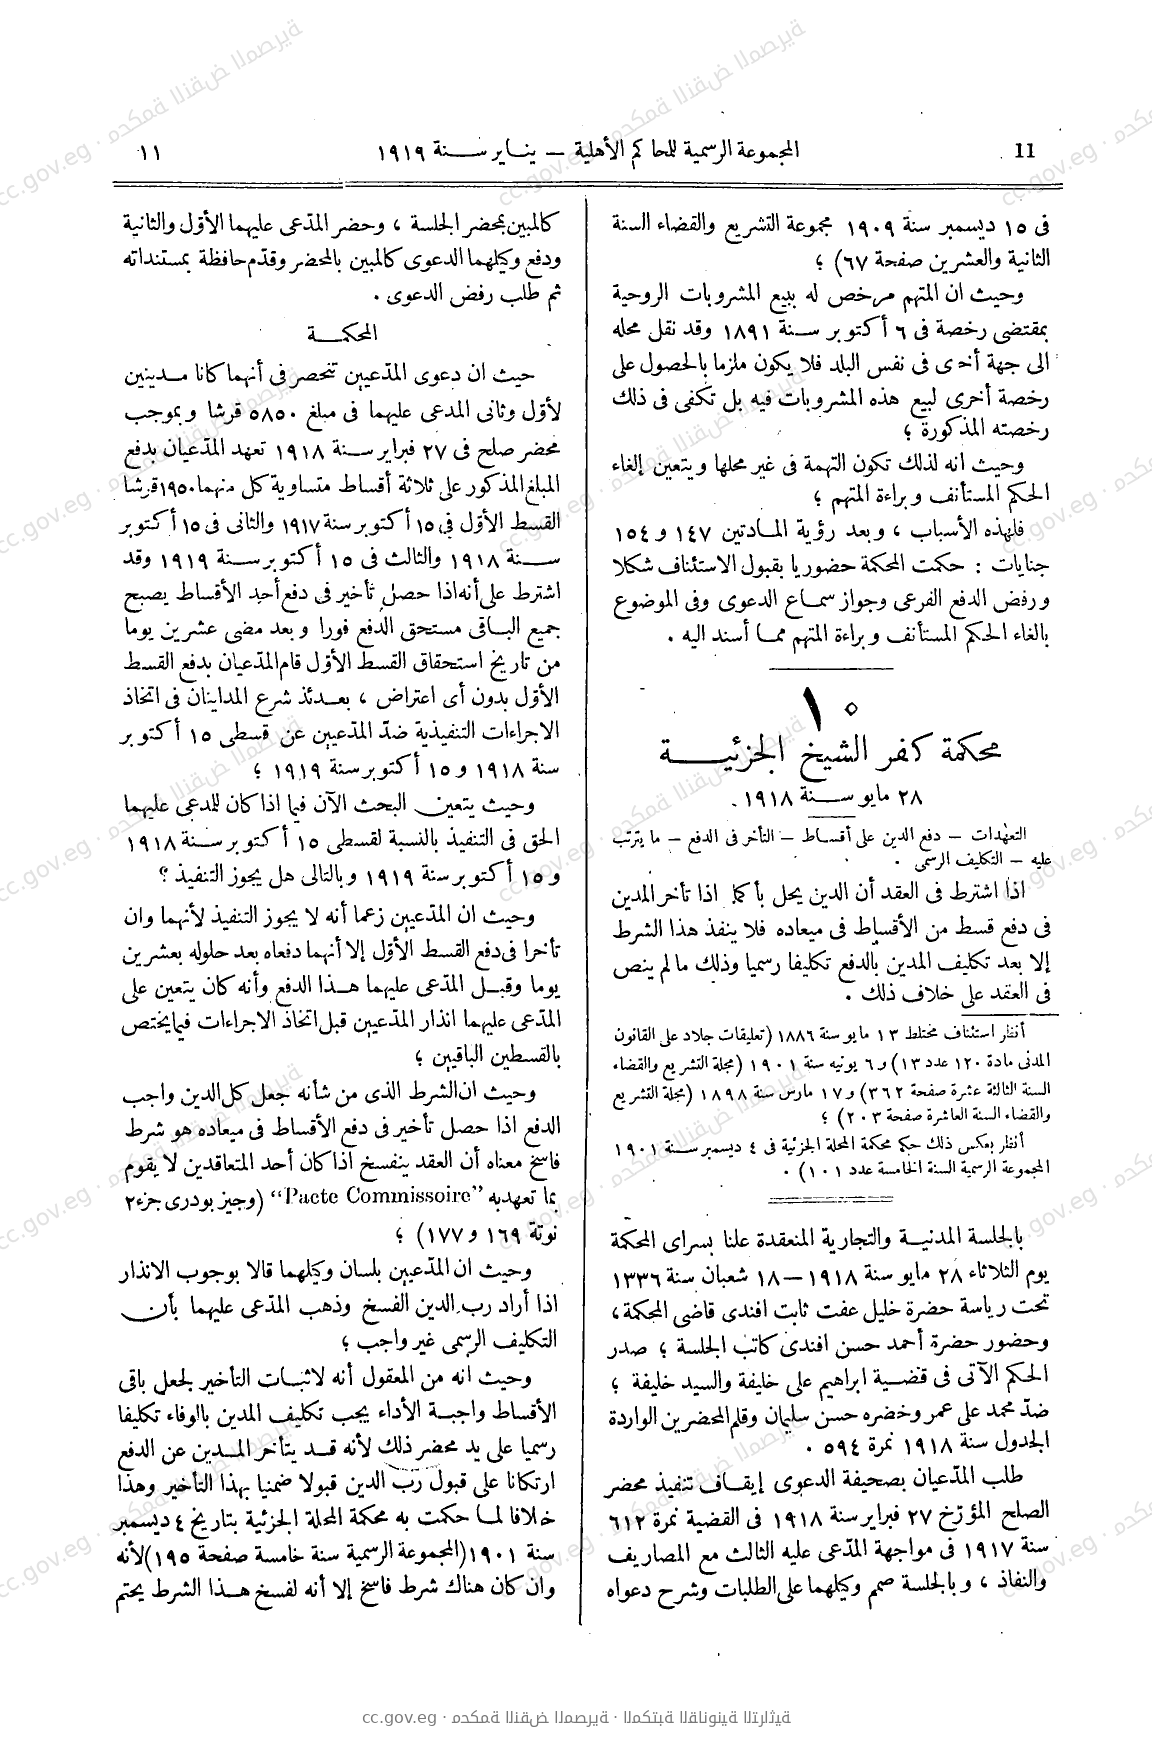 11
المجموعة الرسمية للمحاكم الأهلية — يناير سنة ١٩١٩
١١
فى ١٥ ديسمبر سنة ١٩٠٩ مجموعة التشريع والقضاء السنة
الثانية والعشرين صفحة ٦٧) ؛
وحيث ان المتهم مرخص له ببيع المشروبات الروحية
بمقتضى رخصة فى ٦ أكتوبر سنة ١٨٩١ وقد نقل محله
الى جهة أخرى فى نفس البلد فلا يكون ملزما بالحصول على
رخصة أخرى لبيع هذه المشروبات فيه بل تكفى فى ذلك
رخصته المذكورة ؛
وحيث انه لذلك تكون التهمة فى غير محلها ويتعين إلغاء
الحكم المستأنف وبراءة المتهم ؛
فلهذه الأسباب ، وبعد رؤية المادتين ١٤٧ و ١٥٤
جنايات : حكمت المحكمة حضوريا بقبول الاستئناف شكلا
ورفض الدفع الفرعى وجواز سماع الدعوى وفى الموضوع
بالغاء الحكم المستأنف وبراءة المتهم مما أسند اليه .
١٠
محكمة كفر الشيخ الجزئية
٢٨ مايو سنة ١٩١٨ .
التعهدات — دفع الدين على أقساط — التأخر فى الدفع — ما يترتب
عليه — التكليف الرسمى .
اذا اشترط فى العقد أن الدين يحل بأكمله اذا تأخر المدين
فى دفع قسط من الأقساط فى ميعاده فلا ينفذ هذا الشرط
إلا بعد تكليف المدين بالدفع تكليفا رسميا وذلك مالم ينص
فى العقد على خلاف ذلك .
أنظر استئناف مختلط ١٣ مايو سنة ١٨٨٦ (تعليقات جلاد على القانون
المدنى مادة ١٢٠ عدد ١٣) و ٦ يونيه سنة ١٩٠١ (مجلة التشريع والقضاء
السنة الثالثة عشرة صفحة ٣٦٢) و ١٧ مارس سنة ١٨٩٨ (مجلة التشريع
والقضاء السنة العاشرة صفحة ٢٠٣) ؛
أنظر بعكس ذلك حكم محكمة المحلة الجزئية فى ٤ ديسمبر سنة ١٩٠١
المجموعة الرسمية السنة الخامسة عدد ١٠١) .
بالجلسة المدنية والتجارية المنعقدة علنا بسراى المحكمة
يوم الثلاثاء ٢٨ مايو سنة ١٩١٨ — ١٨ شعبان سنة ١٣٣٦
تحت رياسة حضرة خليل عفت ثابت افندى قاضى المحكمة ،
وحضور حضرة أحمد حسن افندى كاتب الجلسة ؛ صدر
الحكم الآتى فى قضية ابراهيم على خليفة والسيد خليفة ؛
ضدّ محمد على عمر وخضره حسن سليمان وقلم المحضرين الواردة
الجدول سنة ١٩١٨ نمرة ٥٩٤ .
طلب المدّعيان بصحيفة الدعوى إيقاف تنفيذ محضر
الصلح المؤرّخ ٢٧ فبراير سنة ١٩١٨ فى القضية نمرة ٦١٢
سنة ١٩١٧ فى مواجهة المدّعى عليه الثالث مع المصاريف
والنفاذ ، وبالجلسة صمم وكيلهما على الطلبات وشرح دعواه
كالمبين بمحضر الجلسة ، وحضر المدّعى عليهما الأوّل والثانية
ودفع وكيلهما الدعوى كالمبين بالمحضر وقدّم حافظة بمستنداته
ثم طلب رفض الدعوى .
المحكمة
حيث ان دعوى المدّعيين تنحصر فى أنهما كانا مدينين
لأوّل وثانى المدعى عليهما فى مبلغ ٥٨٥٠ قرشا وبموجب
محضر صلح فى ٢٧ فبراير سنة ١٩١٨ تعهد المدّعيان بدفع
المبلغ المذكور على ثلاثة أقساط متساوية كل منهما ١٩٥٠ قرشا
القسط الأوّل فى ١٥ أكتوبر سنة ١٩١٧ والثانى فى ١٥ أكتوبر
سنة ١٩١٨ والثالث فى ١٥ أكتوبر سنة ١٩١٩ وقد
اشترط على أنه اذا حصل تأخير فى دفع أحد الأقساط يصبح
جميع الباقى مستحق الدفع فورا وبعد مضى عشرين يوما
من تاريخ استحقاق القسط الأوّل قام المدّعيان بدفع القسط
الأوّل بدون أى اعتراض ، بعدئذ شرع المداينان فى اتخاذ
الاجراءات التنفيذية ضدّ المدّعيين عن قسطى ١٥ أكتوبر
سنة ١٩١٨ و ١٥ أكتوبر سنة ١٩١٩ ؛
وحيث يتعين البحث الآن فيما اذا كان للمدعى عليهما
الحق فى التنفيذ بالنسبة لقسطى ١٥ أكتوبر سنة ١٩١٨
و ١٥ أكتوبر سنة ١٩١٩ وبالتالى هل يجوز التنفيذ ؟
وحيث ان المدّعيين زعما أنه لا يجوز التنفيذ لأنهما وان
تأخرا فى دفع القسط الأوّل إلا أنهما دفعاه بعد حلوله بعشرين
يوما وقبل المدّعى عليهما هذا الدفع وأنه كان يتعين على
المدّعى عليهما انذار المدّعيين قبل اتخاذ الاجراءات فيما يختص
بالقسطين الباقيين ؛
وحيث ان الشرط الذى من شأنه جعل كل الدين واجب
الدفع اذا حصل تأخير فى دفع الأقساط فى ميعاده هو شرط
فاسخ معناه أن العقد ينفسخ اذا كان أحد المتعاقدين لا يقوم
بما تعهد به "Pacte Commissoire" (وجيز بودرى جزء ٢
نوتة ١٦٩ و ١٧٧) ؛
وحيث ان المدّعيين بلسان وكيلهما قالا بوجوب الانذار
اذا أراد رب الدين الفسخ وذهب المدّعى عليهما بأن
التكليف الرسمى غير واجب ؛
وحيث انه من المعقول أنه لاثبات التأخير لجعل باقى
الأقساط واجبة الأداء يجب تكليف المدين بالوفاء تكليفا
رسميا على يد محضر ذلك لأنه قد يتأخر المدين عن الدفع
ارتكانا على قبول رب الدين قبولا ضمنيا بهذا التأخير وهذا
خلافا لما حكمت به محكمة المحلة الجزئية بتاريخ ٤ ديسمبر
سنة ١٩٠١ (المجموعة الرسمية سنة خامسة صفحة ١٩٥) لأنه
وان كان هناك شرط فاسخ إلا أنه لفسخ هذا الشرط يحتم
cc.gov.eg · محكمة النقض المصرية · المكتبة القانونية التراثية